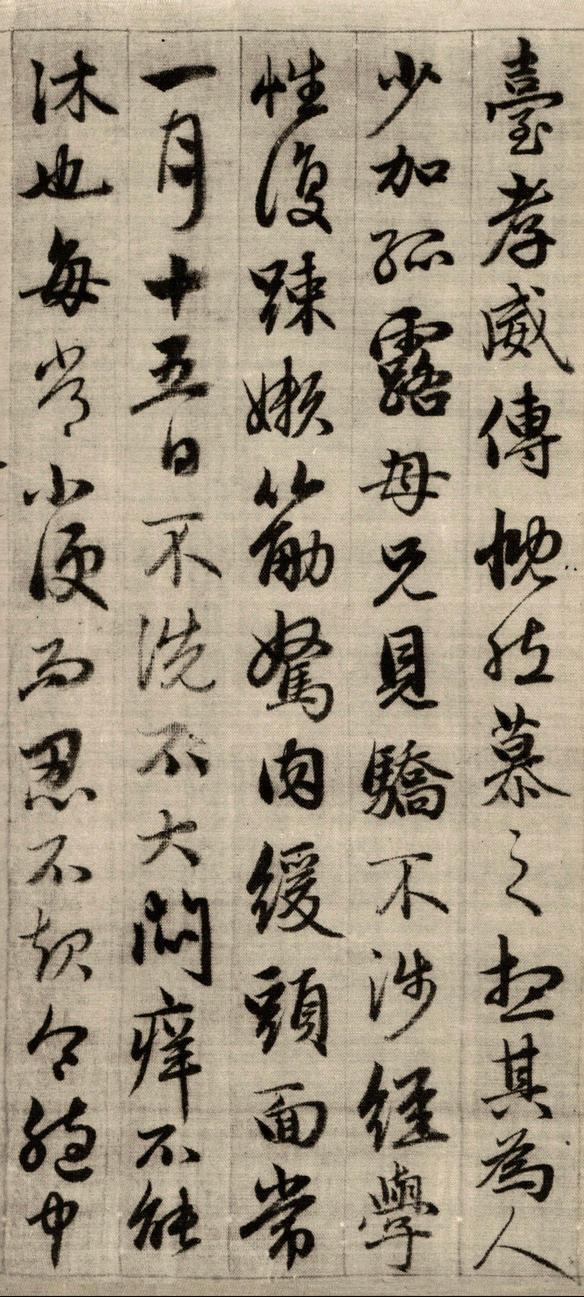 臺孝威傳慨然慕之想其為人
少加孤露母兄見驕不涉經學
性復踈嬾筋駑肉緩頭面常
一月十五日不洗不大悶癢不能
沐也每常小便而忍不起令胞中